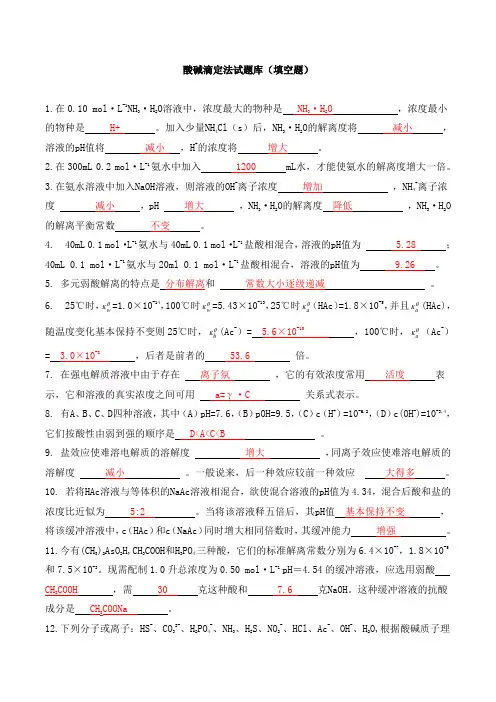 酸碱滴定法试题库（填空题）
1.在0.10 mol·L⁻¹NH₃·H₂O溶液中，浓度最大的物种是 NH₃·H₂O ，浓度最小
的物种是 H+ 。加入少量NH₄Cl（s）后，NH₃·H₂O的解离度将 减小 ，
溶液的pH值将 减小 ，H⁺的浓度将 增大 。
2.在300mL 0.2 mol·L⁻¹氨水中加入 1200 mL水，才能使氨水的解离度增大一倍。
3.在氨水溶液中加入NaOH溶液，则溶液的OH⁻离子浓度 增加 ，NH₄⁺离子浓
度 减小 ，pH 增大 ，NH₃·H₂O的解离度 降低 ，NH₃·H₂O
的解离平衡常数 不变 。
4. 40mL 0.1 mol·L⁻¹氨水与40mL 0.1 mol·L⁻¹盐酸相混合，溶液的pH值为 5.28 ；
40mL 0.1 mol·L⁻¹氨水与20ml 0.1 mol·L⁻¹盐酸相混合，溶液的pH值为 9.26 。
5. 多元弱酸解离的特点是 分布解离和 常数大小逐级递减 。
6. 25℃时，K_w^θ=1.0×10⁻¹⁴，100℃时K_w^θ=5.43×10⁻¹³，25℃时K_a^θ(HAc)=1.8×10⁻⁵，并且K_a^θ(HAc)，
随温度变化基本保持不变则25℃时，K_b^θ(Ac⁻）= 5.6×10⁻¹⁰ ，100℃时，K_b^θ（Ac⁻）
= 3.0×10⁻⁸ ，后者是前者的 53.6 倍。
7. 在强电解质溶液中由于存在 离子氛 ，它的有效浓度常用 活度 表
示，它和溶液的真实浓度之间可用 a=γ·C 关系式表示。
8. 有A、B、C、D四种溶液，其中（A）pH=7.6，（B）pOH=9.5，（C）c（H⁺）=10⁻⁶·²，（D）c(OH⁻)=10⁻²·⁴，
它们按酸性由弱到强的顺序是 D<A<C<B 。
9. 盐效应使难溶电解质的溶解度 增大 ，同离子效应使难溶电解质的
溶解度 减小 。一般说来，后一种效应较前一种效应 大得多 。
10. 若将HAc溶液与等体积的NaAc溶液相混合，欲使混合溶液的pH值为4.34，混合后酸和盐的
浓度比近似为 5:2 。当将该溶液释五倍后，其pH值 基本保持不变 ，
将该缓冲溶液中，c（HAc）和c（NaAc）同时增大相同倍数时，其缓冲能力 增强 。
11.今有(CH₃)₂AsO₂H,CH₃COOH和H₃PO₄三种酸，它们的标准解离常数分别为6.4×10⁻⁷，1.8×10⁻⁵
和7.5×10⁻³。现需配制1.0升总浓度为0.50 mol·L⁻¹ pH＝4.54的缓冲溶液，应选用弱酸
CH₃COOH ，需 30 克这种酸和 7.6 克NaOH。这种缓冲溶液的抗酸
成分是 CH₃COONa 。
12.下列分子或离子：HS⁻、CO₃²⁻、H₂PO₄⁻、NH₃、H₂S、NO₂⁻、HCl、Ac⁻、OH⁻、H₂O,根据酸碱质子理